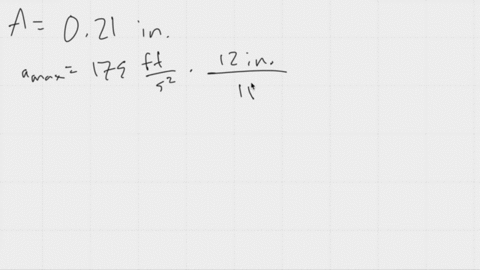 A = 0.21 in.
a max = 175 ft/s² · 12 in./1